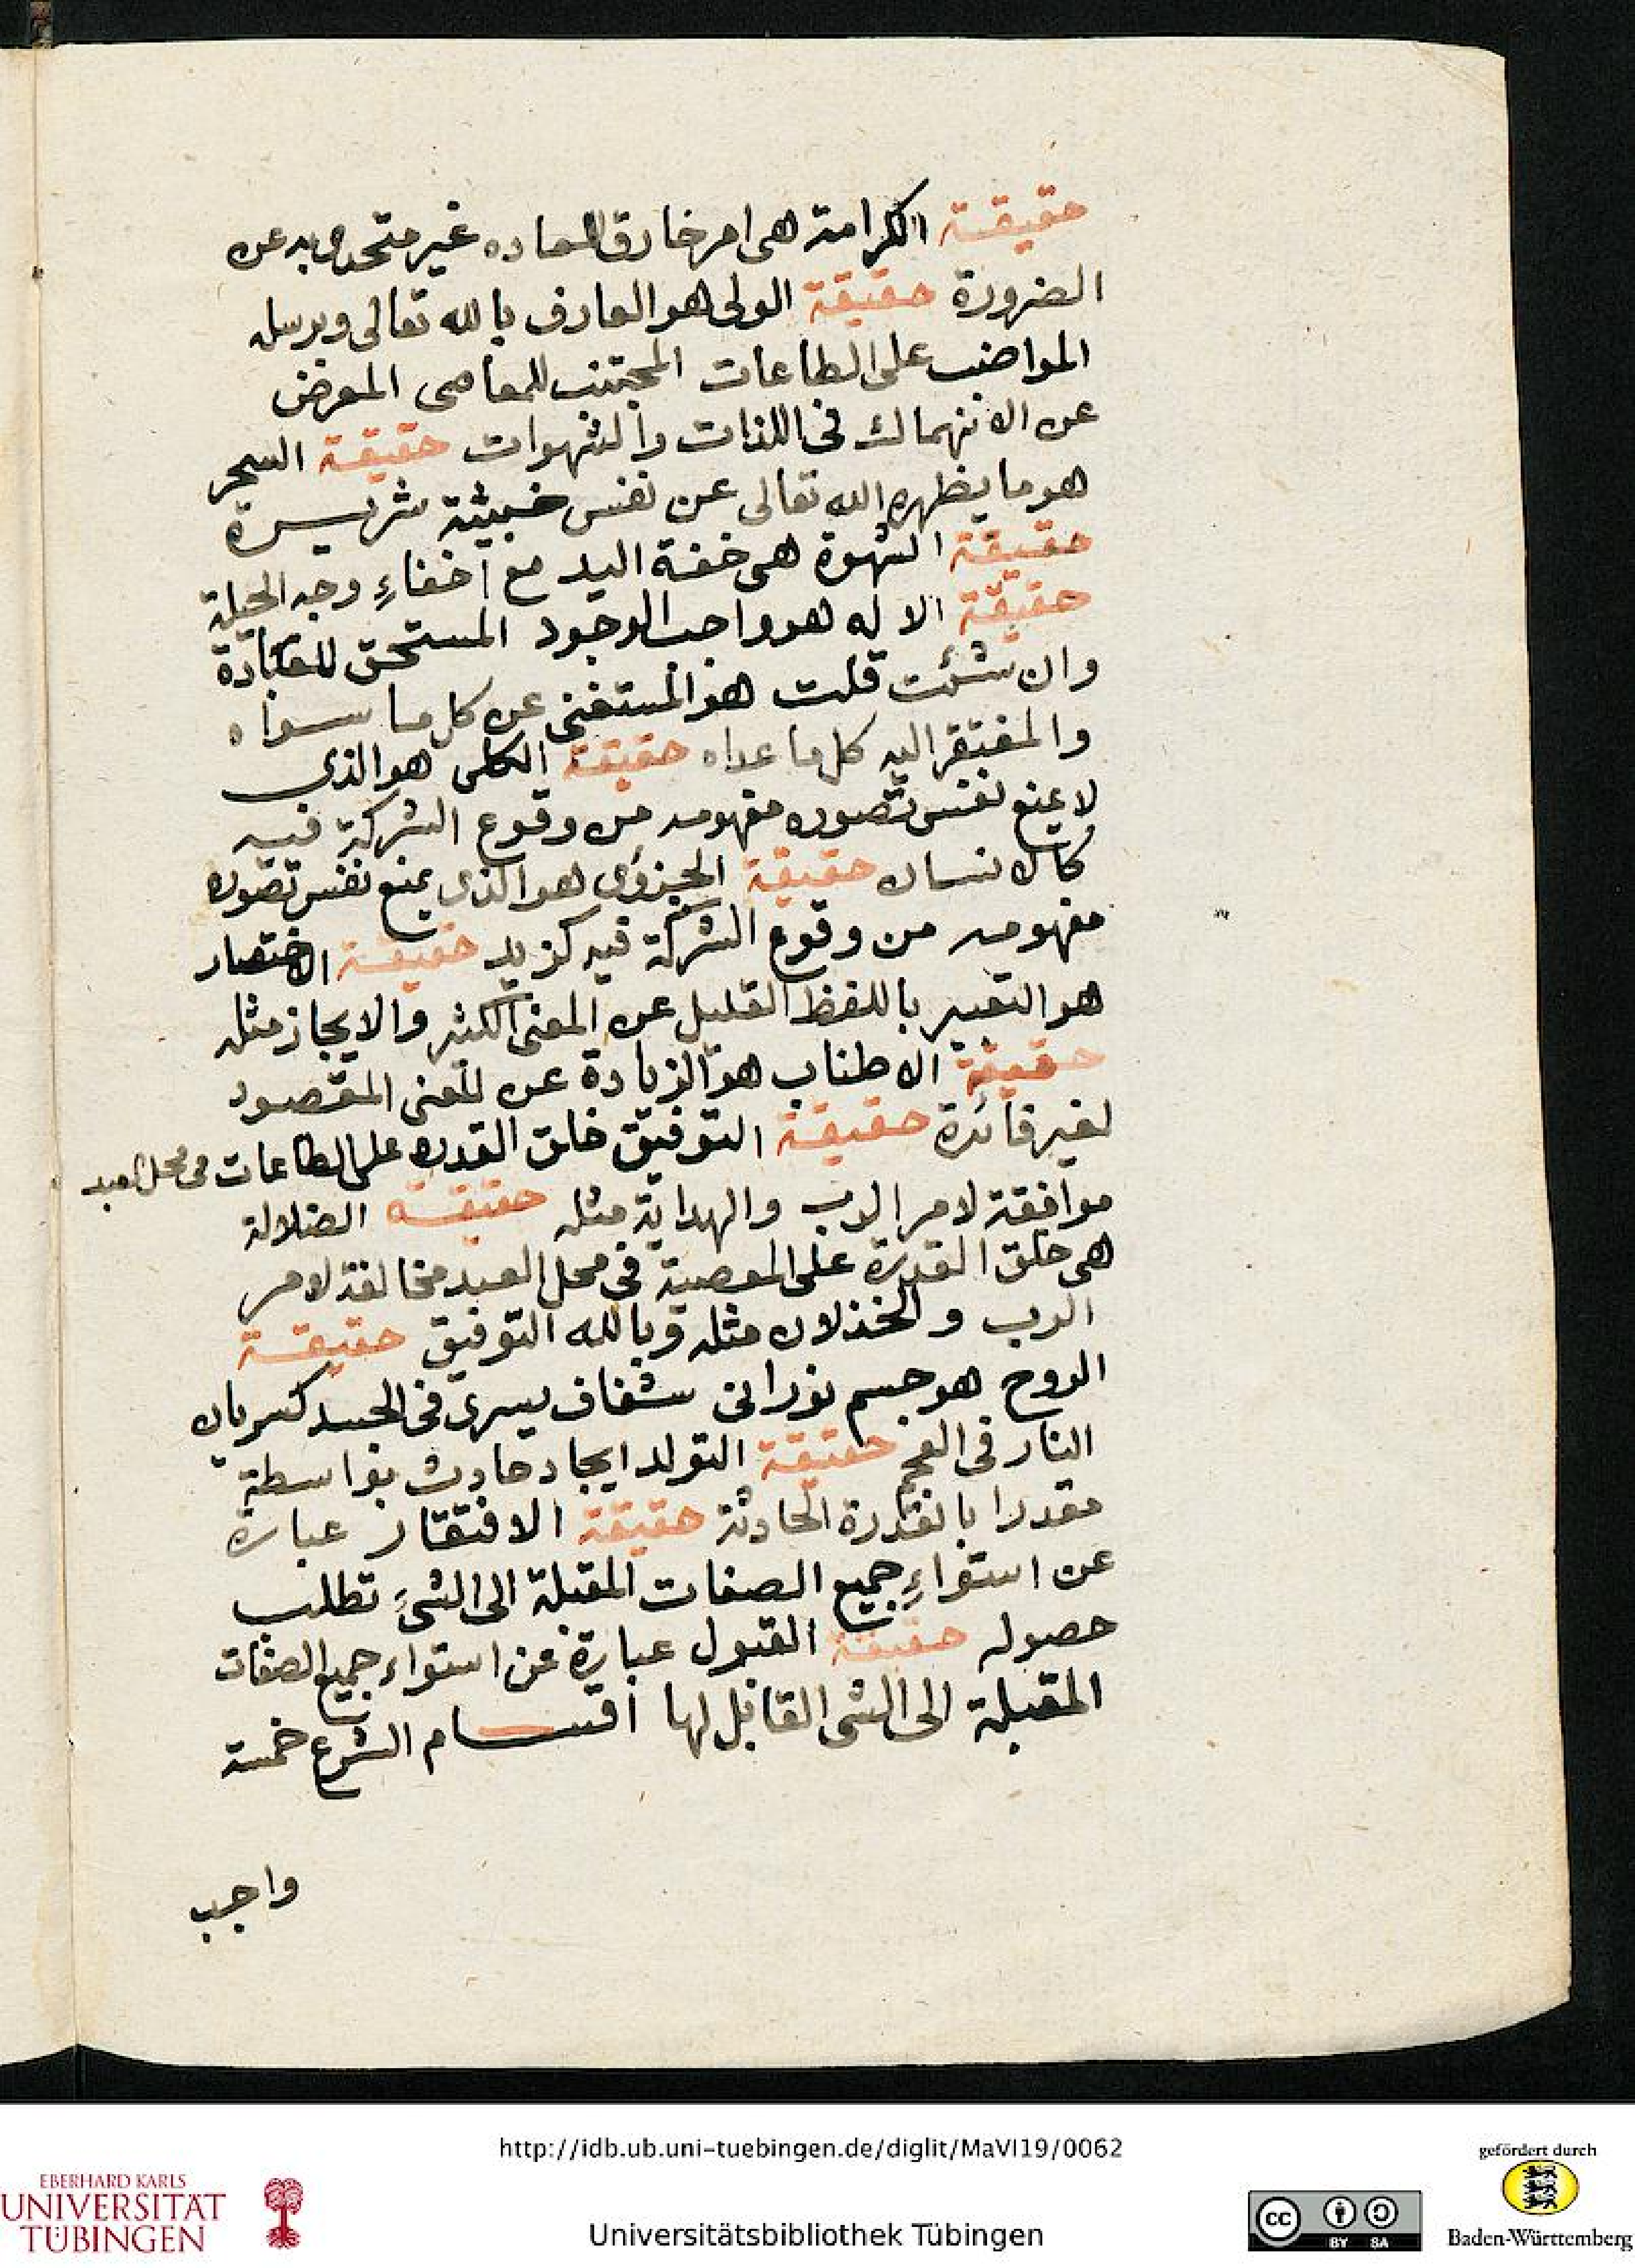 حقيقة الكرامة هى امر خارق العاده غير متحدى به عن
الضرورة حقيقة الولى هو العارف بالله تعالى وبرسله
المواضب على الطاعات المجتنب للمعاصى المعرض
عن الانهماك فى اللذات والشهوات حقيقة السحر
هو ما يظهره الله تعالى عن نفس خبيثة شريرة
حقيقة الشهوة هى خفة اليد مع اخفاءِ وجه الحيلة
حقيقة الاله هو واجب الوجود المستحق للعبادة
وان شئت قلت هو المستغنى عن كل ما سواه
والمفتقر اليه كل ما عداه حقيقة الكلى هو الذى
لا يمنع نفس تصوره مفهومه من وقوع الشركة فيه
كالانسان حقيقة الجزؤى هو الذى يمنع نفس تصوره
مفهومه من وقوع الشركة فيه كزيد حقيقة الاختصار
هو التعبير باللفظ القليل عن المعنى الكثير والايجاز مثله
حقيقة الاطناب هو الزيادة عن المعنى المقصود
لغير فائدة حقيقة التوفيق خلق القدره على الطاعات فى محل العبد
موافقة لامر الرب والهداية مثله حقيقة الضلالة
هى خلق القدرة على المعصية فى محل العبد مخالفة لامر
الرب والخذلان مثله وبالله التوفيق حقيقة
الروح هو جسم نورانى شفاف يسرى فى الجسد كسريان
النار فى الفحم حقيقة التولد ايجاد حادث بواسطة
مقدرا بالقدرة الحادثة حقيقة الافتقار عبارة
عن استواءِ جميع الصفات المقبلة الى الشىءِ تطلب
حصوله حقيقة القبول عبارة عن استواء جميع الصفات
المقبلة الى الشى القابل لها اقسام الشرع خمسة
واجب
http://idb.ub.uni-tuebingen.de/diglit/MaVI19/0062
Universitätsbibliothek Tübingen
EBERHARD KARLS
UNIVERSITÄT
TÜBINGEN
cc BY SA
gefördert durch
Baden-Württemberg